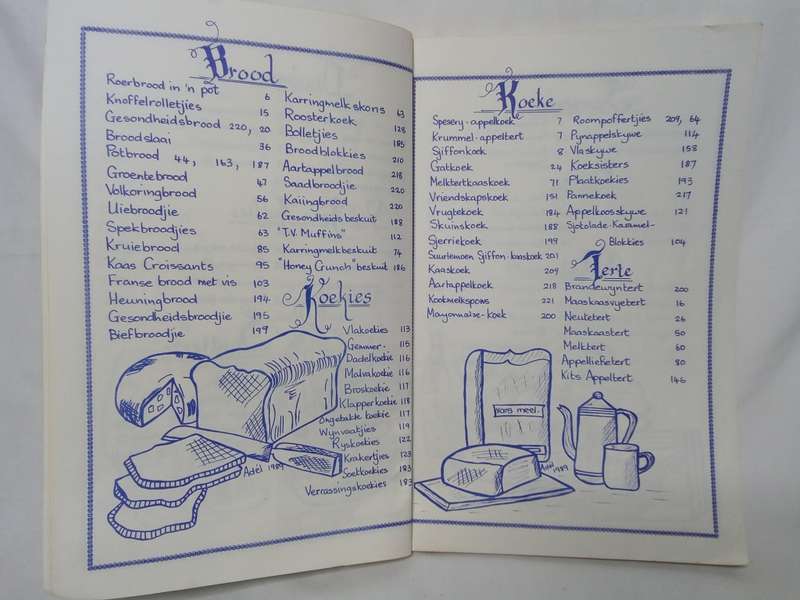 Brood
Roerbrood in 'n pot 6
Knoffelrolletjies 15
Gesondheidsbrood 220, 20
Broodslaai 36
Potbrood 44, 163, 187
Groentebrood 47
Volkoringbrood 56
Uiebroodjie 62
Spekbroodjies 63
Kruiebrood 85
Kaas Croissants 95
Franse brood met vis 103
Heuningbrood 194
Gesondheidsbroodjie 195
Biefbroodjie 199
Karringmelkskons 63
Roosterkoek 128
Bolletjies 185
Broodblokkies 210
Aartappelbrood 218
Saadbroodjie 220
Kaiingbrood 220
Gesondheidsbeskuit 188
"T.V. Muffins" 112
Karringmelkbeskuit 74
"Honey Crunch" beskuit 186
Koekies
Vlakoekies 113
Gemmer- 115
Dadelkoekie 116
Malvakoekie 116
Broskoekie 117
Klapperkoekie 118
Ongebakte koekie 117
Wynvaatjies 119
Ryskoekies 122
Krakertjies 123
Soetkoekies 183
Verrassingskoekies 183
Adèl 1989
Koeke
Spesery-appelkoek 7
Krummel-appeltert 7
Sjiffonkoek 8
Gatkoek 24
Melktertkaaskoek 71
Vriendskapskoek 151
Vrugtekoek 184
Skuinskoek 188
Sjerriekoek 199
Suurlemoen Sjiffon-kaaskoek 201
Kaaskoek 209
Aartappelkoek 218
Kookmelkspons 221
Mayonnaise-koek 200
Roompoffertjies 209, 64
Pynappelskywe 114
Vlaskywe 158
Koeksisters 187
Plaatkoekies 193
Pannekoek 217
Appelkoosskywe 121
Sjokolade-Karamel-
Blokkies 104
Terte
Brandewyntert 200
Maaskaasvyetert 16
Neutetert 26
Maaskaastert 50
Melktert 60
Appelliefietert 80
Kits Appeltert 146
Bors meel.
Adèl 1989